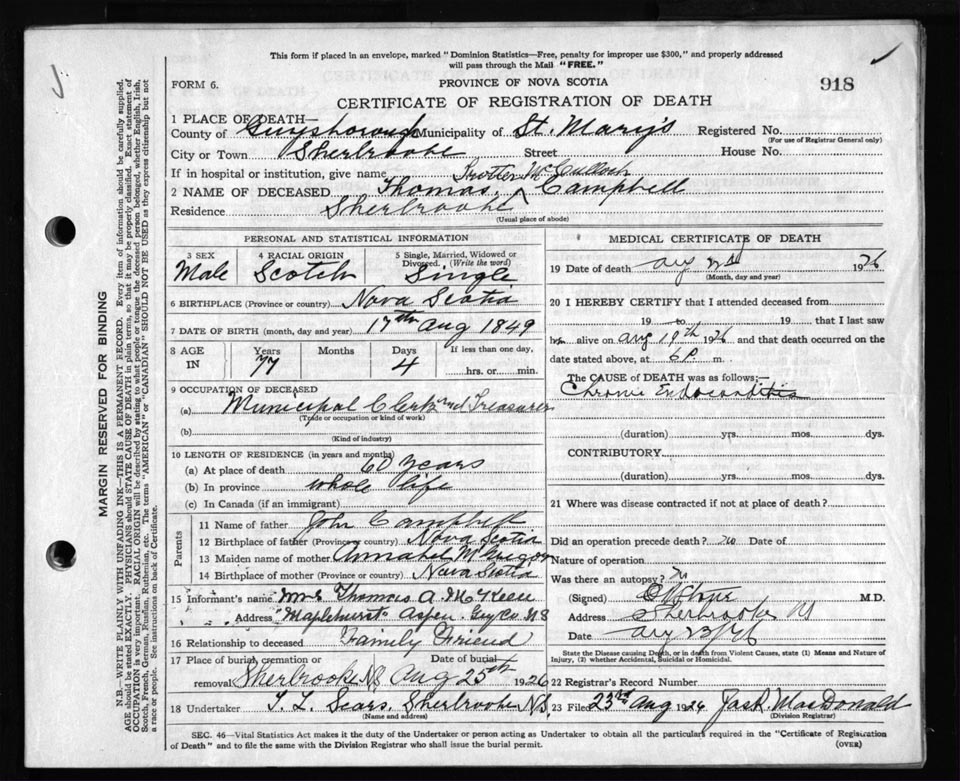 This form if placed in an envelope, marked "Dominion Statistics—Free, penalty for improper use $300," and properly addressed
will pass through the Mail "FREE."
FORM 6.
PROVINCE OF NOVA SCOTIA
918
CERTIFICATE OF REGISTRATION OF DEATH
1 PLACE OF DEATH—
County of Guysborough Municipality of St. Mary's Registered No.
(For use of Registrar General only)
City or Town Sherbrooke Street House No.
If in hospital or institution, give name
Trotter McCulloch
2 NAME OF DECEASED Thomas ^ Campbell
Residence Sherbrooke
(Usual place of abode)
PERSONAL AND STATISTICAL INFORMATION
3 SEX
Male
4 RACIAL ORIGIN
Scotch
5 Single, Married, Widowed or
Divorced. (Write the word)
Single
6 BIRTHPLACE (Province or country) Nova Scotia
7 DATE OF BIRTH (month, day and year) 17th Aug 1849
8 AGE
IN
Years
77
Months
Days
4
If less than one day,
hrs. or min.
9 OCCUPATION OF DECEASED
(a) Municipal Clerk and Treasurer
(Trade or occupation or kind of work)
(b)
(Kind of industry)
10 LENGTH OF RESIDENCE (in years and months)
(a) At place of death 60 years
(b) In province whole life
(c) In Canada (if an immigrant)
Parents
11 Name of father John Campbell
12 Birthplace of father (Province or country) Nova Scotia
13 Maiden name of mother Annabel McGregor
14 Birthplace of mother (Province or country) Nova Scotia
15 Informant's name Mrs Thomas A. McKeen
Address "Maplehurst" Aspen. Guy Co. N.S
16 Relationship to deceased Family Friend
17 Place of burial, cremation or
removal Sherbrooke NS
Date of burial
Aug 25th 1926
18 Undertaker T. L. Sears. Sherbrooke N.S.
(Name and address)
MEDICAL CERTIFICATE OF DEATH
19 Date of death Aug 1926
(Month, day and year)
20 I HEREBY CERTIFY that I attended deceased from
19 to 19 that I last saw
him alive on Aug 19th 1926 and that death occurred on the
date stated above, at 6 P. m.
The CAUSE of DEATH was as follows:—
Chronic Endocarditis
(duration) yrs. mos. dys.
CONTRIBUTORY
(duration) yrs. mos. dys.
21 Where was disease contracted if not at place of death?
Did an operation precede death? no Date of
Nature of operation
Was there an autopsy? no
(Signed) M.D.
Address Sherbrooke NS
Date Aug 23/26
State the Disease causing Death, or in death from Violent Causes, state (1) Means and Nature of
Injury, (2) whether Accidental, Suicidal or Homicidal.
22 Registrar's Record Number
23 Filed 23rd Aug 1926 Jas R. MacDonald
(Division Registrar)
SEC. 46—Vital Statistics Act makes it the duty of the Undertaker or person acting as Undertaker to obtain all the particulars required in the "Certificate of Registration
of Death" and to file the same with the Division Registrar who shall issue the burial permit.
(OVER)
MARGIN RESERVED FOR BINDING
N.B.—WRITE PLAINLY WITH UNFADING INK—THIS IS A PERMANENT RECORD. Every item of information should be carefully supplied.
AGE should be stated EXACTLY. PHYSICIANS should STATE CAUSE OF DEATH in plain terms, so that it may be properly classified. Exact statement of
OCCUPATION is very important. RACIAL ORIGIN will be described by stating to what people or tongue the deceased person belonged, whether English, Irish,
Scotch, French, German, Russian, Ruthenian, etc. The terms "AMERICAN" or "CANADIAN" SHOULD NOT BE USED as they express citizenship but not
a race or people. See instructions on back of Certificate.